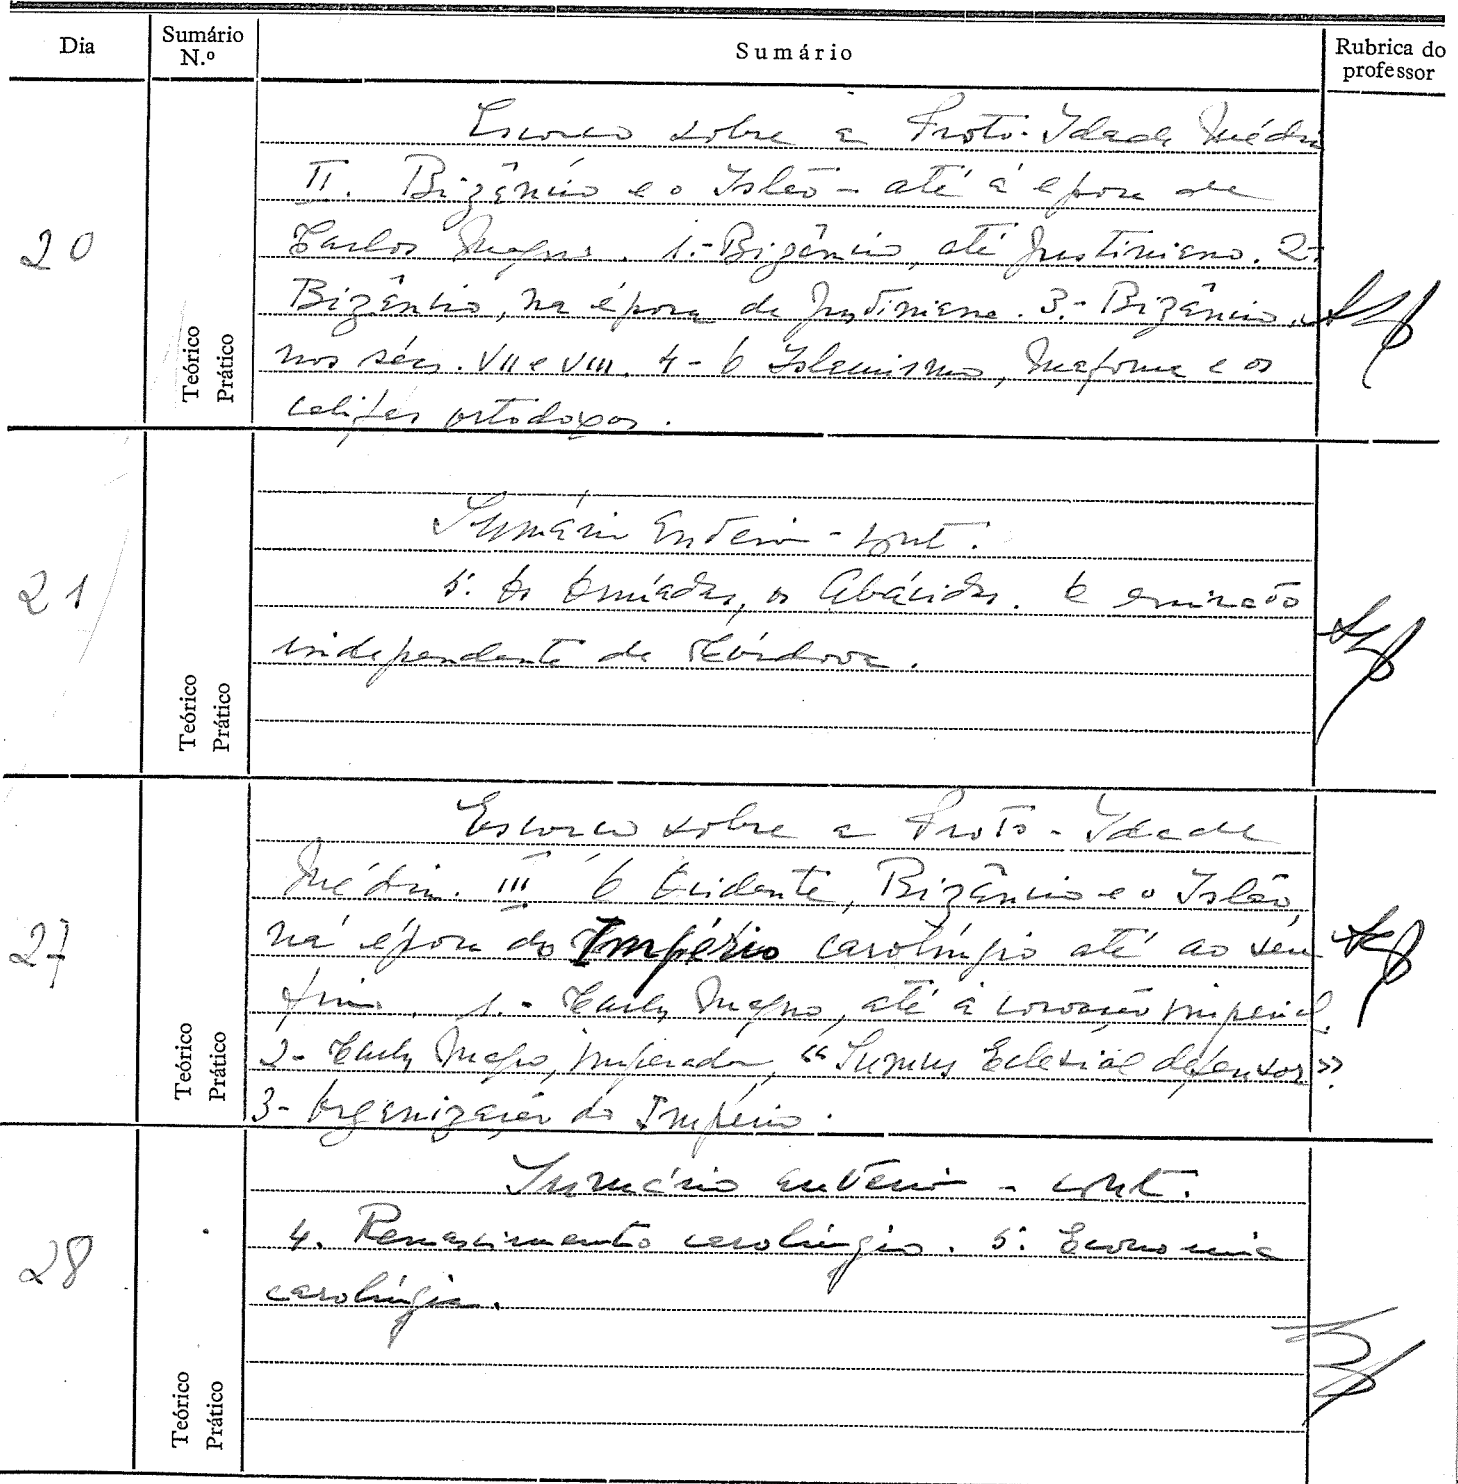 Dia
Sumário N.º
Sumário
Rubrica do professor
20
Teórico
Prático
Escorço sobre a Proto-Idade Média
II. Bizâncio e o Islão - até à época de
Carlos Magno. 1.- Bizâncio, até Justiniano. 2-
Bizâncio, na época de Justiniano. 3.- Bizâncio,
nos sécs. VII e VIII. 4 - O Islamismo, Mafoma e os
califas ortodoxos.
21
Teórico
Prático
Sumário anterior - cont.
5. Os Omíadas, os Abácidas. O emirato
independente de Córdova.
27
Teórico
Prático
Escorço sobre a Proto-Idade
Média. III O Ocidente, Bizâncio e o Islão,
na época do Império carolíngio até ao seu
fim. 1.- Carlos Magno, até à coroação imperial.
2- Carlos Magno, imperador, "Sumus Eclesiae defensor".
3- Organização do Império.
28
Teórico
Prático
Sumário anterior - cont.
4. Renascimento carolíngio. 5. Economia
carolíngia.